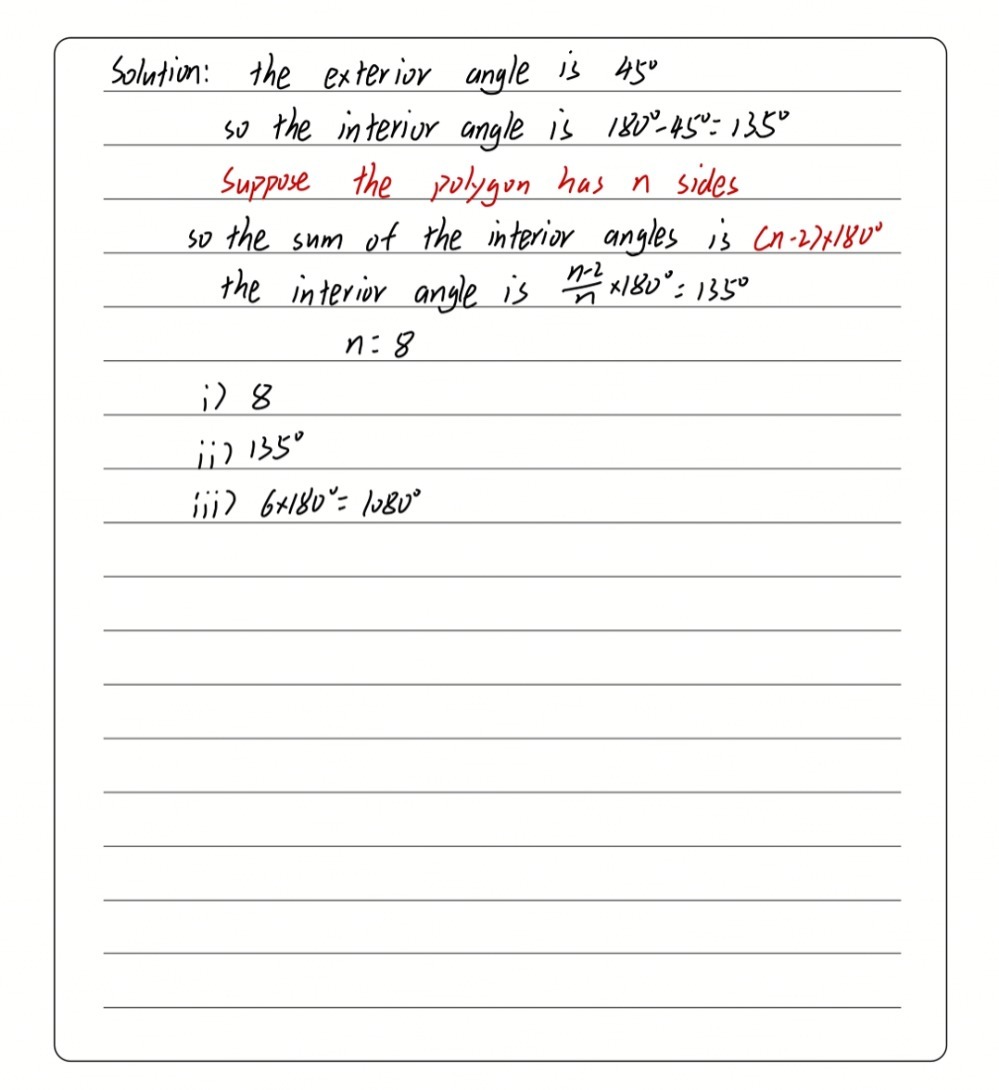 Solution: the exterior angle is 45°
so the interior angle is 180°-45°=135°
Suppose the polygon has n sides
so the sum of the interior angles is (n-2)×180°
the interior angle is n-2/n ×180°=135°
n=8
i) 8
ii) 135°
iii) 6×180°=1080°